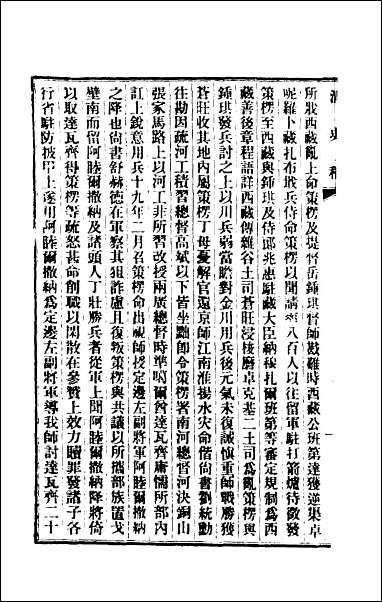 清史稿
所戕西藏亂上命策楞及提督岳鍾琪督師戡難時西藏公班第達獲逆渠卓
呢羅卜藏扎布戢兵侍命策楞以聞請率八百人以往留軍駐打箭爐待徵發
策楞至西藏與鍾琪及侍郎兆惠駐藏大臣納穆扎爾班第等審定規制為西
藏善後章程語詳西藏傳雜谷土司蒼旺侵梭磨卓克基二土司為亂策楞與
鍾琪發兵討之上以川兵弱富瞻對金川用兵後元氣未復誡慎重師戰勝獲
蒼旺收其地內屬策楞丁母憂解官還京師江南淮揚水災命偕尚書劉統勳
往勘因疏河工積習總督高斌以下皆坐黜卽令策楞署南河總督河決銅山
張家馬路上以河工非所習改授兩廣總督時準噶爾酋達瓦齊庸懦所部內
訌上銳意用兵十九年二月召策楞命出視師授定邊左副將軍阿睦爾撒納
之降也尚書舒赫德在軍察其狙詐慮且復叛策楞與共議以所攜部族置戈
壁南而留阿睦爾撒納及諸頭人丁壯勝兵者從軍上聞阿睦爾撒納降將倚
以取達瓦齊得策楞等疏怒甚命削職以閑散在參贊上效力贖罪發諸子各
行省駐防披甲上遂用阿睦爾撒納為定邊左副將軍導我師討達瓦齊二十